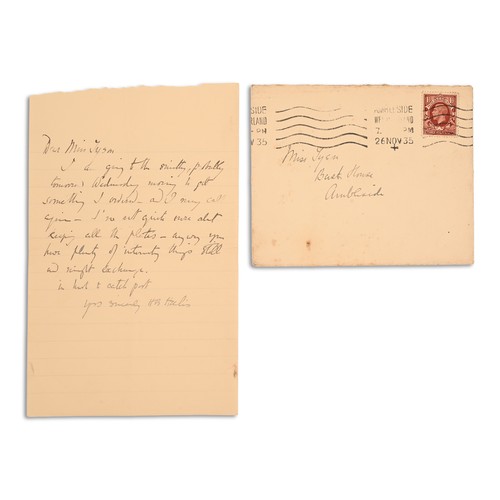 Dear Miss Tyson
I am going to the
tomorrow Wednesday morning to get
something I ordered – and I may call
again – I'm not quite sure about
keeping all the plates – anyway you
have plenty of interesting things still
and might exchange.
in haste to catch post
yrs sincerely
AMBLESIDE
WESTMORLAND
7. PM
26 NOV 35
Miss Tyson
Ambleside